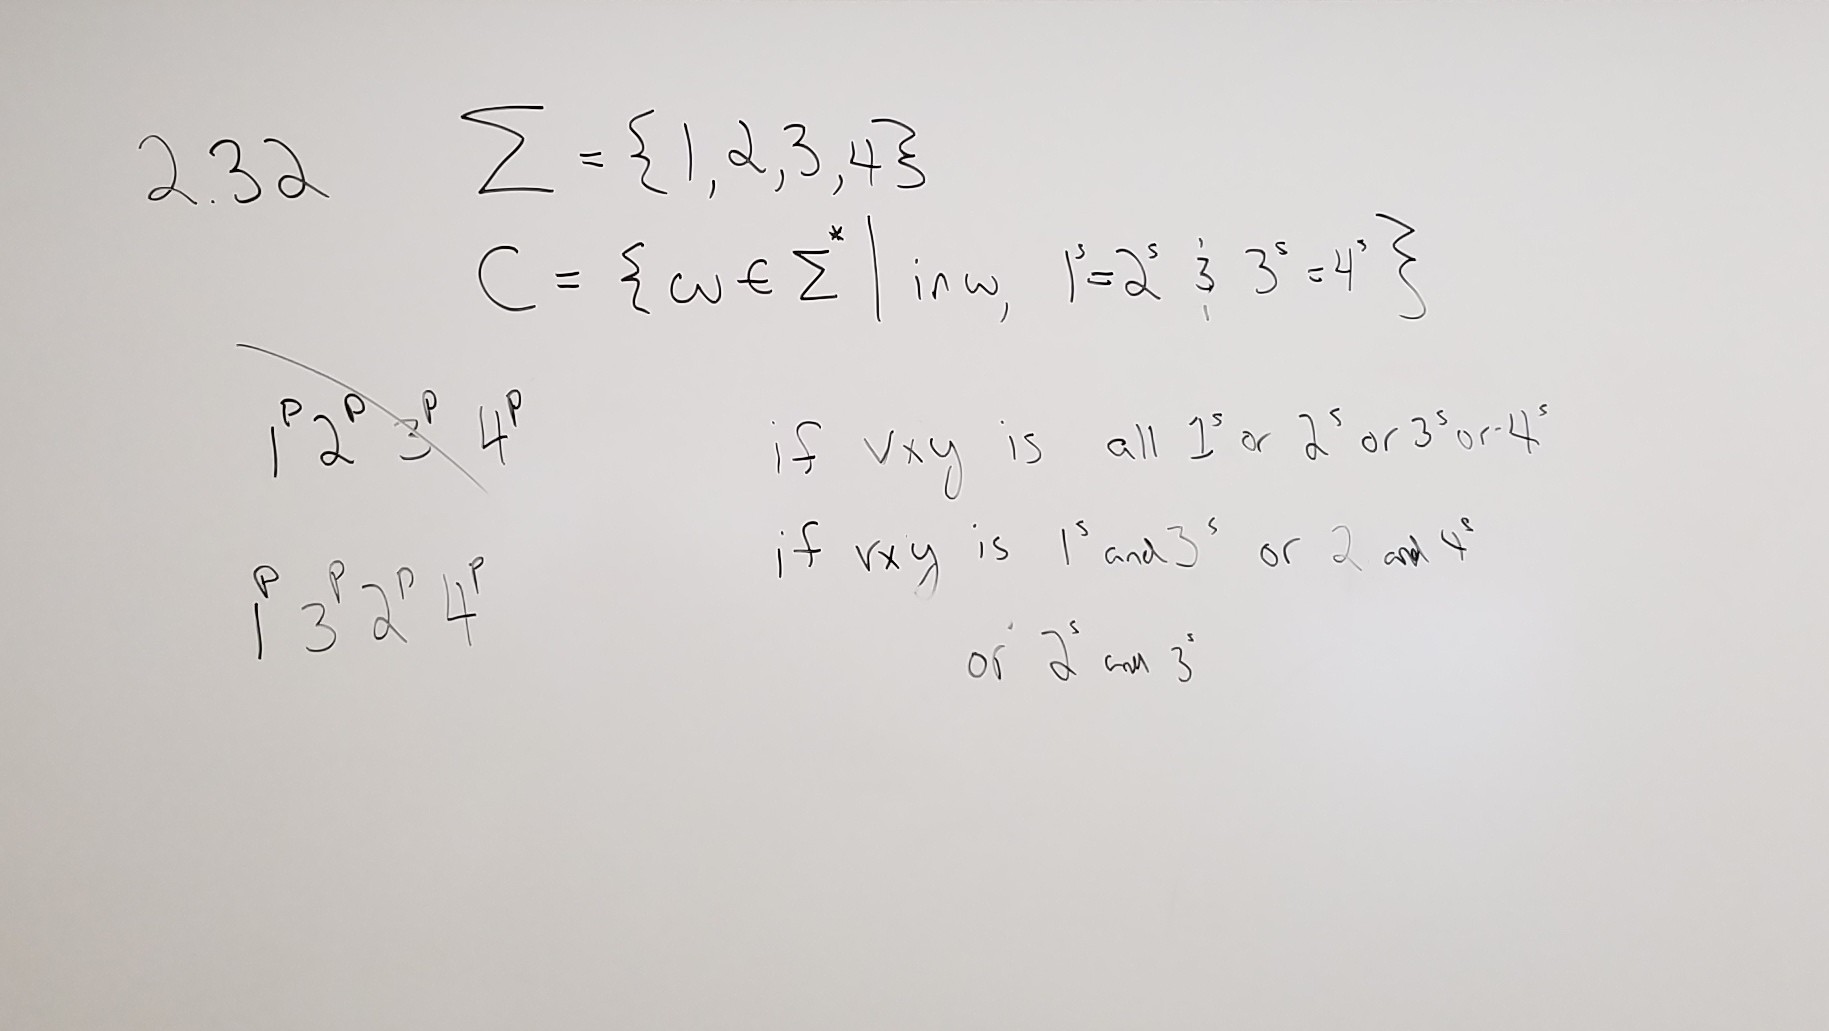 2.32 Σ = {1,2,3,4}
C = {w ∈ Σ* | in w, 1ˢ=2ˢ & 3ˢ=4ˢ}
1ᵖ2ᵖ3ᵖ4ᵖ
1ᵖ3ᵖ2ᵖ4ᵖ
if vxy is all 1ˢ or 2ˢ or 3ˢ or 4ˢ
if vxy is 1ˢ and 3ˢ or 2 and 4ˢ
or 2ˢ and 3ˢ